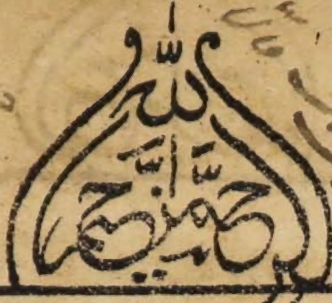 الله
الرحمن الرحيم